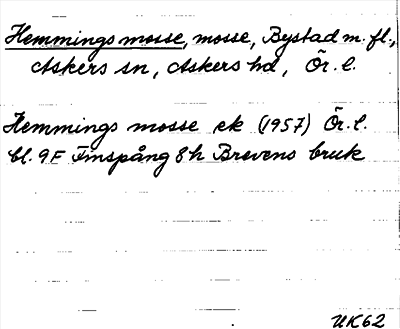 Hemmings mosse, mosse, Bystad m. fl.,
Askers sn, Askers hd, Ör. l.
Hemmings mosse ek (1957) Ör. l.
bl. 9F Finspång 8h Brevens bruk
UK62